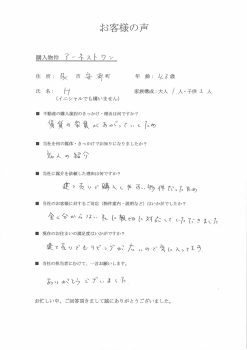 お客様の声
購入物件 アーネストワン
住 所： 市 町 年 齢： 歳
氏 名： H 家族構成：大人 1 人・子供 2 人
(イニシャルでも構いません)
■ 不動産の購入検討のきっかけ・理由は何ですか？
賃貸の家賃が上がっていくため
■ 当社を何の媒体・きっかけでお知りになりましたか？
知人の紹介
■ 当社に紹介を依頼した理由は何ですか？
建て売りで購入しやすい物件だったため
■ 当社のお客様に対するご対応（物件案内・説明など）はいかがですか？
全く分からない私に親切に対応してくださきました
■ 現在のお住まいの満足度はいかがですか？
建て売りでもリビングが広いので気に入ってます
■ 当社の担当者にむけて、一言お願いします。
ありがとうございました
お忙しい中、ご回答頂きまして誠にありがとうございました。